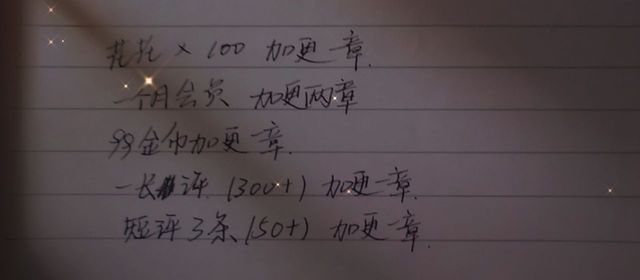 花花×100 加更一章.
一个月会员 加更两章
99金币加更一章.
一长评 (300+) 加更一章.
短评3条 (50+) 加更一章.